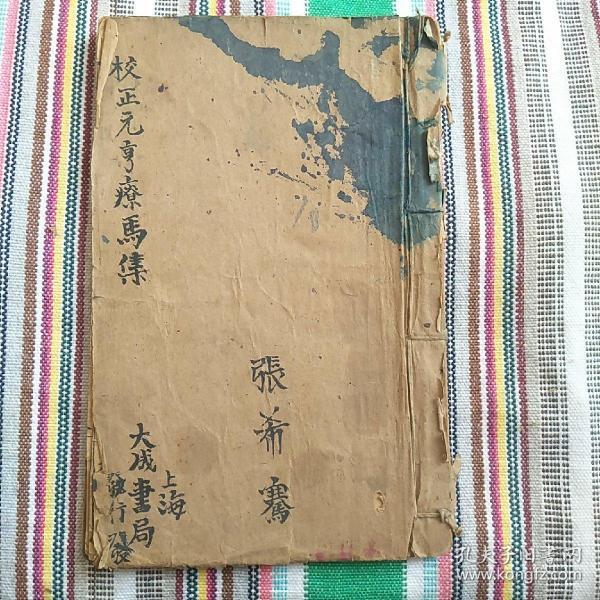 校正元亨療馬集
張希騫
上海
大成書局
發行
孔夫子旧书网
www.kongfz.com